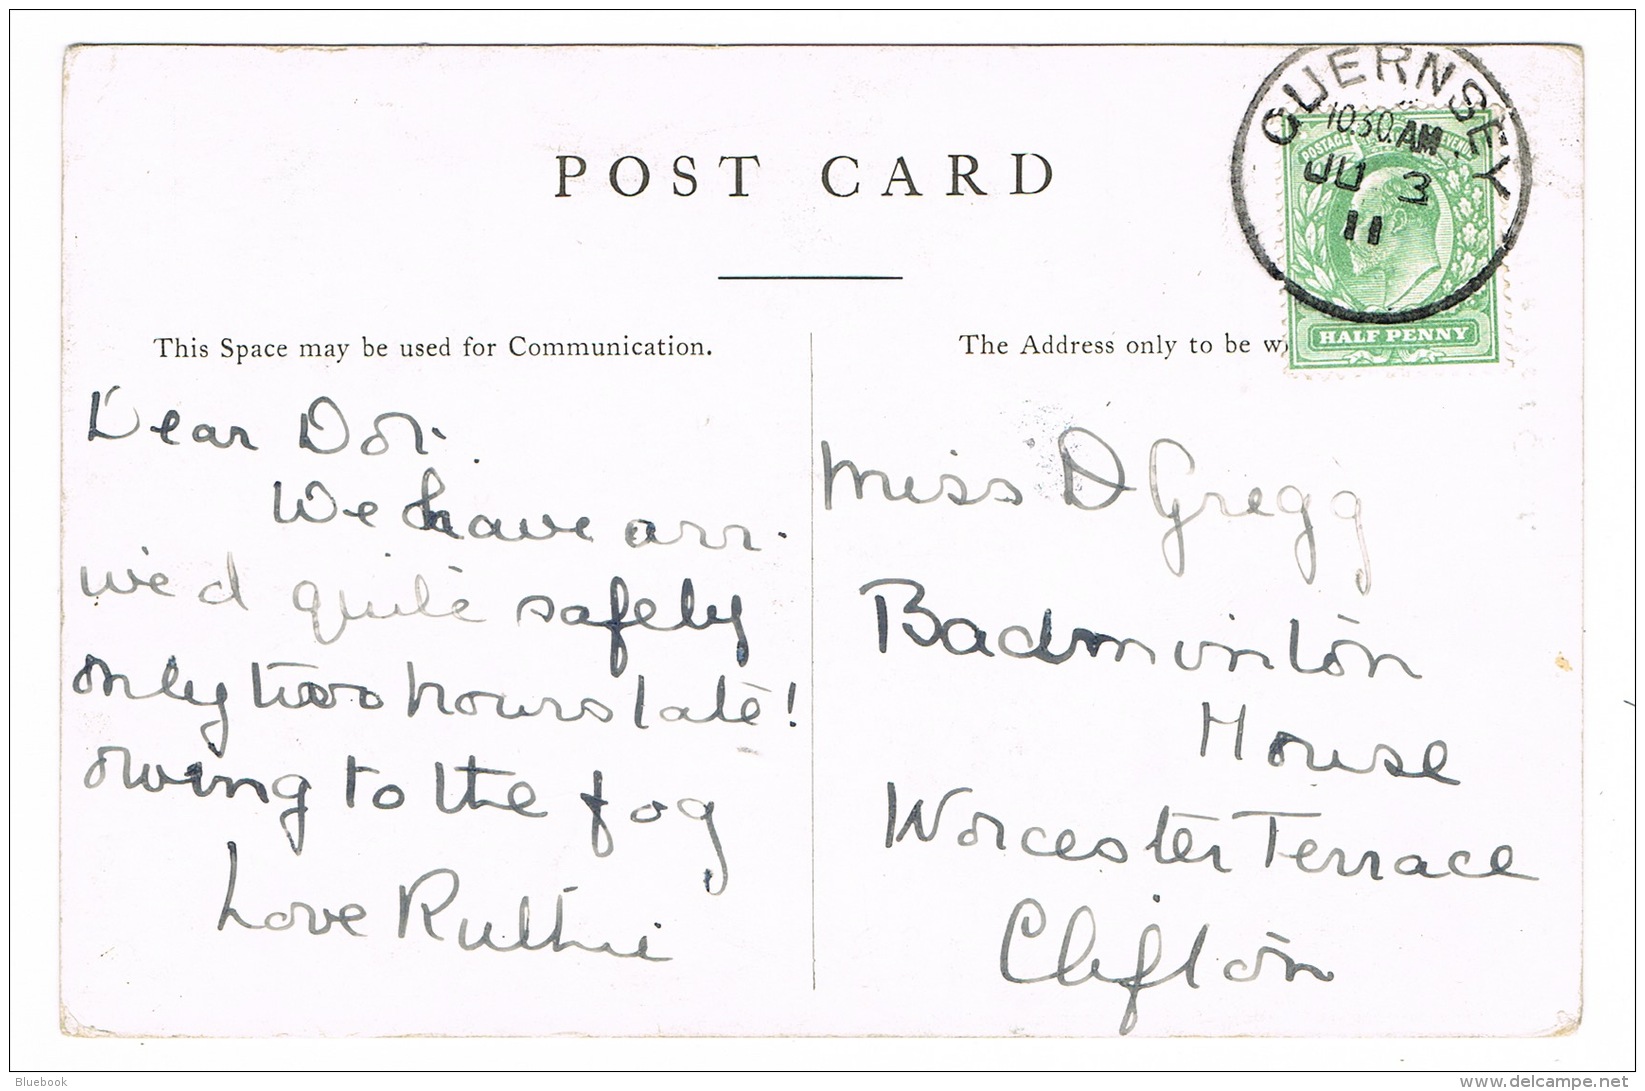 POST CARD
GUERNSEY
10.30.AM
JU 3
11
POSTAGE
HALF PENNY
This Space may be used for Communication.
The Address only to be w
Dear Dot.
We have arr-
ived quite safely
only two hours late!
owing to the fog
Love Ruthie
Miss D Gregg
Badminton
House
Worcester Terrace
Clifton
Bluebook
www.delcampe.net